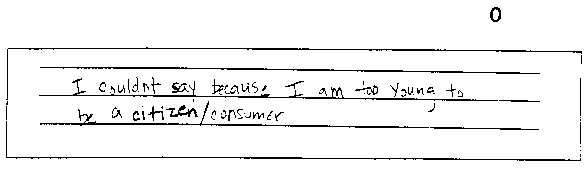 0
I couldnt say because I am too young to
be a citizen/consumer